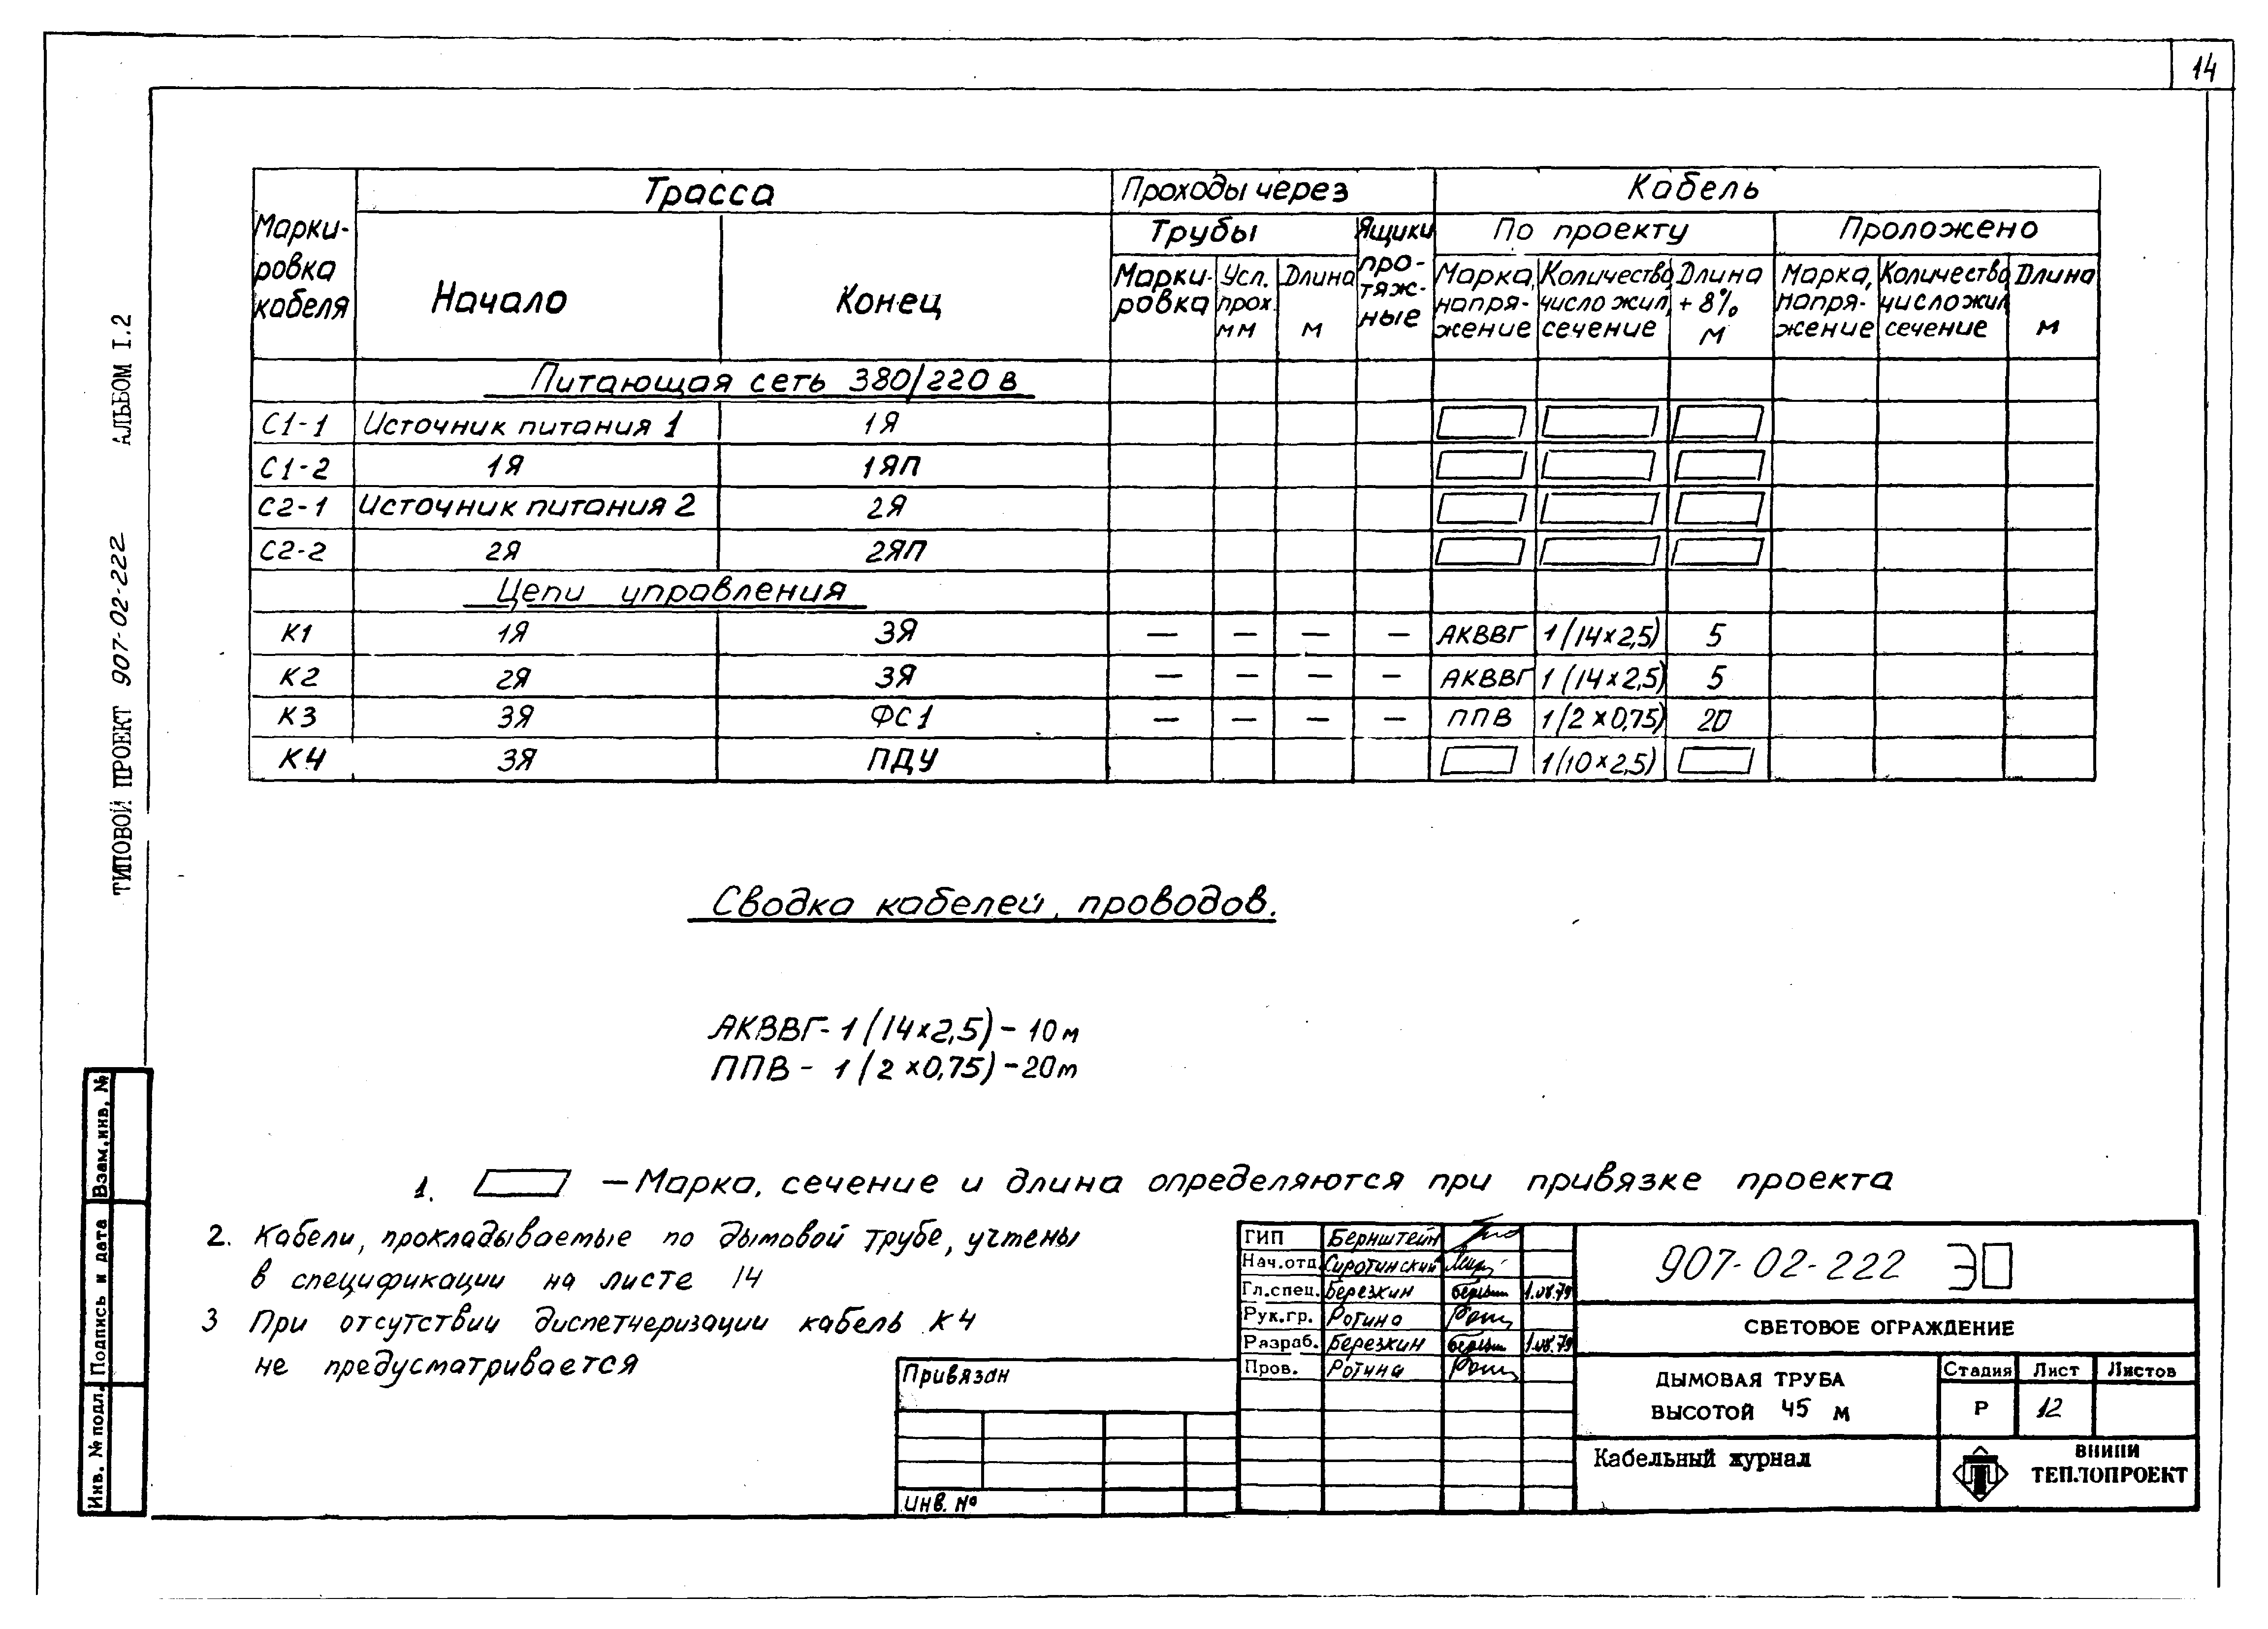 14
АЛЬБОМ I.2
ТИПОВОЙ ПРОЕКТ 907-02-222
Марки-ровка кабеля | Трасса | Проходы через | Кабель
Начало | Конец | Трубы | Ящики про-тяж-ные | По проекту | Проложено
Марки-ровка | Усл. прох. мм | Длина м | Марка, напря-жение | Количество, число жил, сечение | Длина + 8% м | Марка, напря-жение | Количество, число жил сечение | Длина м
Питающая сеть 380/220 в
С1-1 Источник питания 1 1Я
С1-2 1Я 1ЯП
С2-1 Источник питания 2 2Я
С2-2 2Я 2ЯП
Цепи управления
К1 1Я 3Я — — — — АКВВГ 1(14×2,5) 5
К2 2Я 3Я — — — — АКВВГ 1(14×2,5) 5
К3 3Я ФС1 — — — — ППВ 1(2×0,75) 20
К4 3Я ПДУ 1(10×2,5)
Сводка кабелей, проводов.
АКВВГ- 1(14×2,5) - 10м
ППВ - 1(2×0,75) - 20м
1. — Марка, сечение и длина определяются при привязке проекта
2. Кабели, прокладываемые по дымовой трубе, учтены
в спецификации на листе 14
3 При отсутствии диспетчеризации кабель К4
не предусматривается
Привязан
Инв. №
ГИП Бернштейн
Нач.отд. Сиротинский
Гл.спец. Березкин 1.08.79
Рук.гр. Ротина
Разраб. Березкин 1.08.79
Пров. Ротина
907-02-222 Э
СВЕТОВОЕ ОГРАЖДЕНИЕ
ДЫМОВАЯ ТРУБА
ВЫСОТОЙ 45 м
Стадия Лист Листов
Р 12
Кабельный журнал
ВНИПИ
ТЕПЛОПРОЕКТ
Взам.инв. №
Подпись и дата
Инв. № подл.